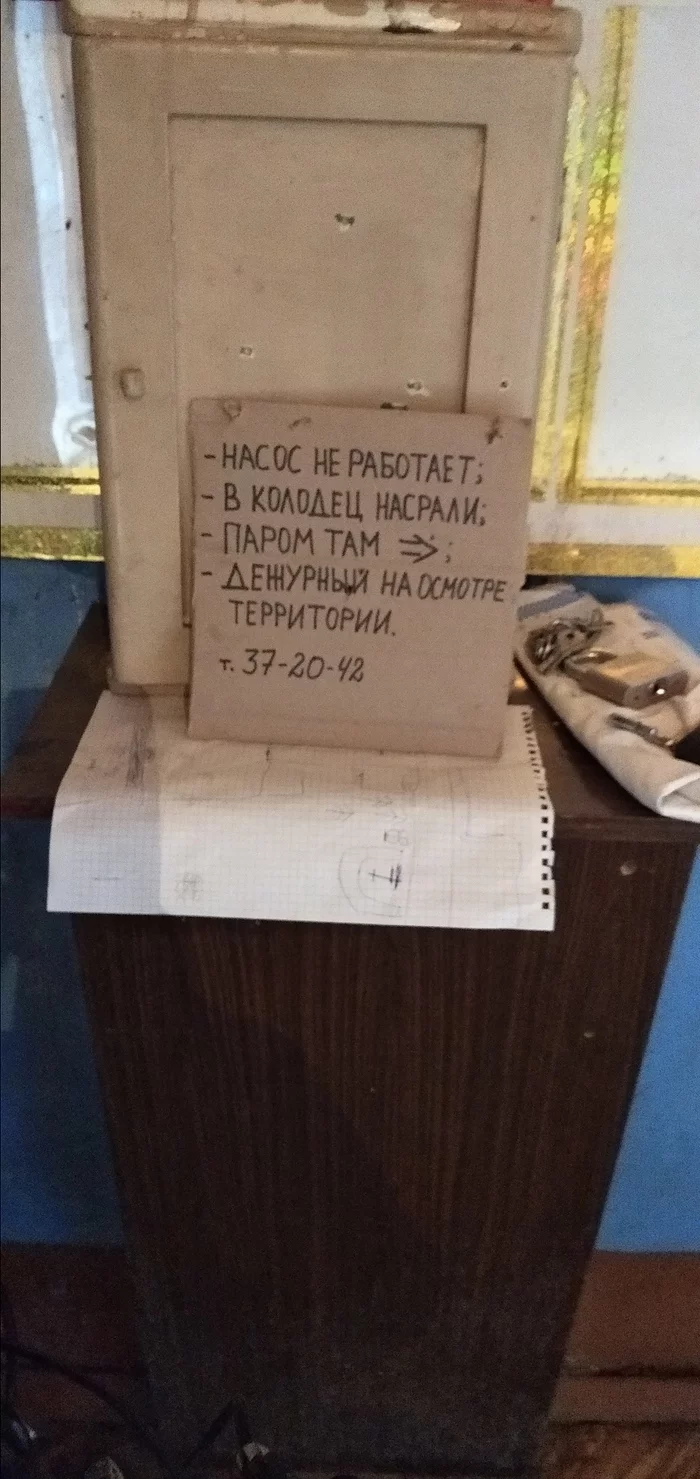 - НАСОС НЕ РАБОТАЕТ;
- В КОЛОДЕЦ НАСРАЛИ;
- ПАРОМ ТАМ ⇒;
- ДЕЖУРНЫЙ НА ОСМОТРЕ
ТЕРРИТОРИИ.
т. 37-20-42